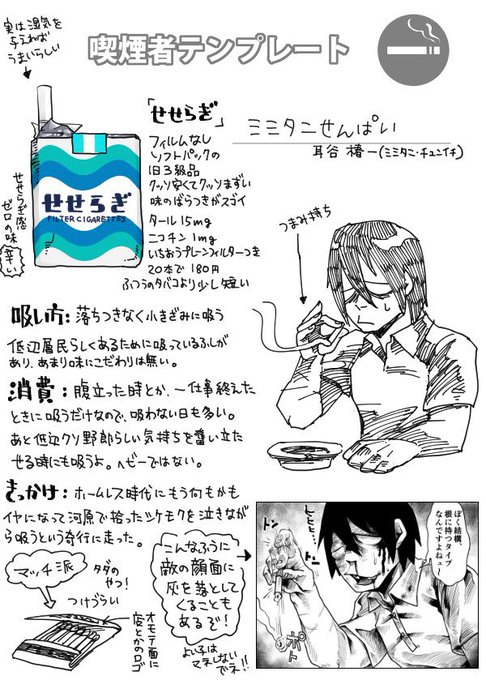 喫煙者テンプレート
実は湿気を
与えれば
うまいらしい
「せせらぎ」
ミミタニせんぱい
耳谷 椿一(ミミタニ・チュンイチ)
せせらぎ
FILTER CIGARETTES
せせらぎ感
ゼロの味
辛い
フィルムなし
ソフトパックの
旧3級品
クッソ安くてクッソまずい
味のばらつきがスゴイ
タール15mg
ニコチン1mg
いちおうプレーンフィルターつき
20本で180円
ふつうのタバコより少し短い
つまみ持ち
吸い方:落ちつきなく小きざみに吸う
低辺層民らしくあるために吸っているふしが
あり、あまり味にこだわりは無い。
消費:腹立った時とか、一仕事終えた
ときに吸うだけなので、吸わない日も多い。
あと低辺クソ野郎らしい気持ちを奮い立た
せる時にも吸うよ。ヘビーではない。
きっかけ:ホームレス時代にもう何もかも
イヤになって河原で拾ったシケモクを泣きなが
ら吸うという奇行に走った。
マッチ派
タダの
やつ!
つけづらい
オモテ面に
店とかのロゴ
こんなふうに
敵の顔面に
灰を落として
くることも
あるぞ!
よい子は
マネしないでネ!!
ぼく結構、
根に持つタイプ
なんですよねェー!
ヒヒヒ
ポト